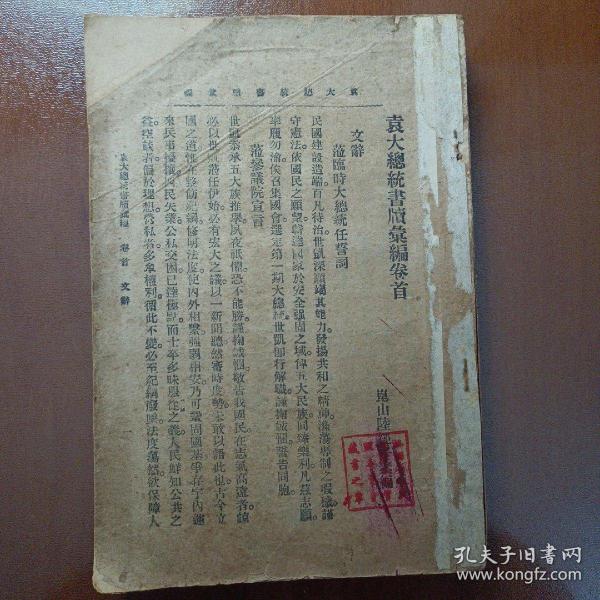 袁大總統書牘彙編
袁大總統書牘彙編卷首
崑山陸
文辭
蒞臨時大總統任誓詞
民國建設造端百凡待治世凱深願竭其能力發揚共和之精神滌盪專制之瑕穢謹
守憲法依國民之願望蘄達國家於安全強固之域俾五大民族同臻樂利凡茲志願
率履勿渝俟召集國會選定第一期大總統世凱卽行解職謹掬誠悃誓告同胞
蒞參議院宣言
世凱忝承五大族推舉夙夜祇懼恐不能勝謹掬誠悃敬告我國民在志氣高遠者諒
必以世凱蒞任伊始必有宏大之議以一新聞聽然審時度勢未敢以語此也古今立
國之道惟在整飭紀綱修明法度使內外相繫強弱相安乃可鞏固國基爭存宇內邇
來民事擾攘四民失業公私交困已達極點而士卒多昧服從之義人民鮮知公共之
益空談者偏於理想營私者多爭權利循此不變必至紀綱廢墜法度蕩然欲保障人
袁大總統書牘彙編 卷首 文辭
孔夫子旧书网
www.kongfz.com